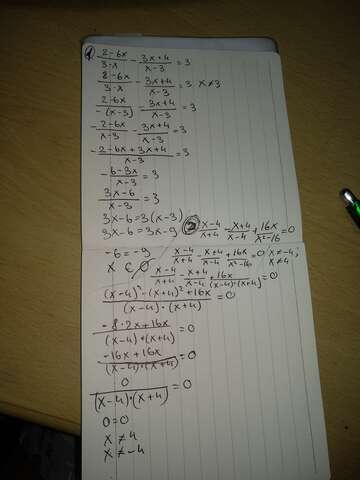 ① (2-6x)/(3-x) - (3x+4)/(x-3) = 3
(2-6x)/(3-x) - (3x+4)/(x-3) = 3 x≠3
(2-6x)/(-(x-3)) - (3x+4)/(x-3) = 3
- (2-6x)/(x-3) - (3x+4)/(x-3) = 3
- (2-6x+3x+4)/(x-3) = 3
- (6-3x)/(x-3) = 3
(3x-6)/(x-3) = 3
3x-6=3(x-3)
3x-6=3x-9
-6=-9
x∈∅
② (x-4)/(x+4) - (x+4)/(x-4) + 16x/(x²-16) = 0
(x-4)/(x+4) - (x+4)/(x-4) + 16x/(x²-16) = 0 x≠-4; x≠4
(x-4)/(x+4) - (x+4)/(x-4) + 16x/((x-4)*(x+4)) = 0
((x-4)²-(x+4)²+16x)/((x-4)*(x+4)) = 0
(-8*2x+16x)/((x-4)*(x+4)) = 0
(-16x+16x)/((x-4)*(x+4)) = 0
0/((x-4)*(x+4)) = 0
0=0
x≠4
x≠-4